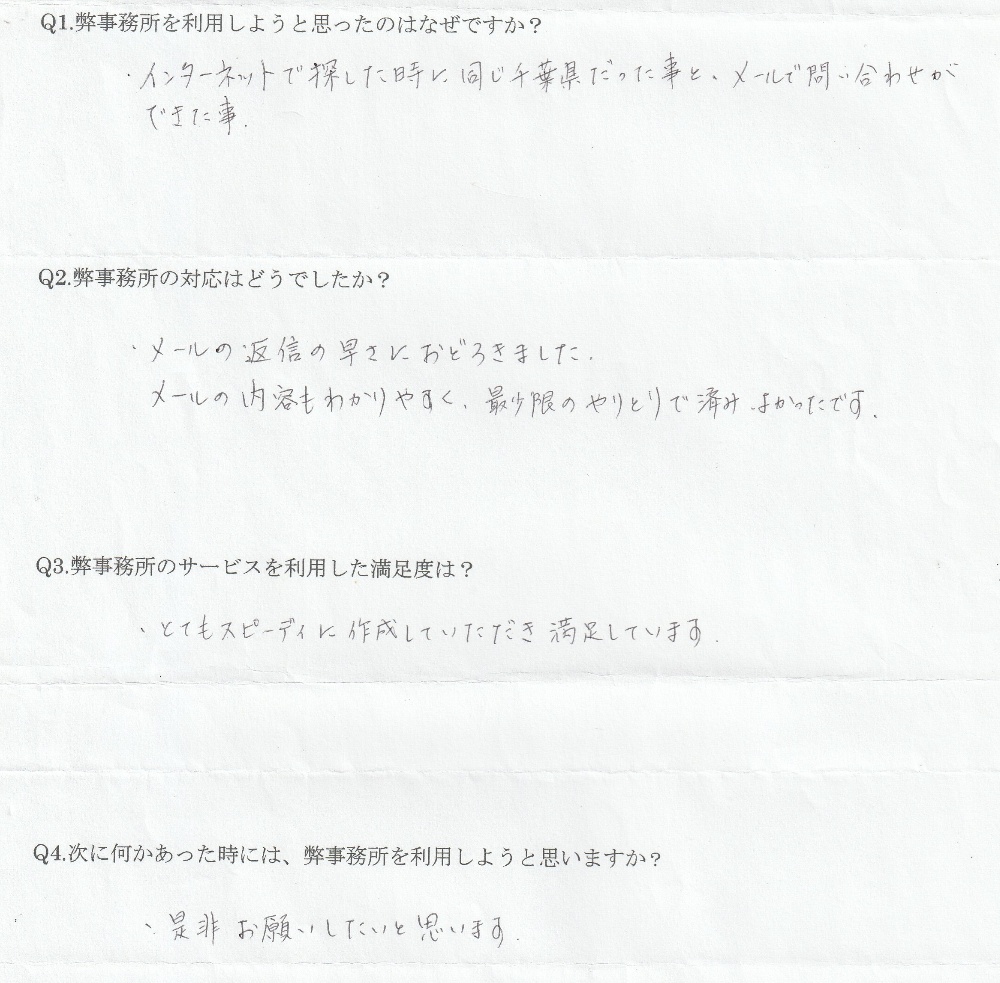 Q1.弊事務所を利用しようと思ったのはなぜですか？
・インターネットで探した時に同じ千葉県だった事と、メールで問い合わせが
できた事.
Q2.弊事務所の対応はどうでしたか？
・メールの返信の早さにおどろきました.
メールの内容もわかりやすく、最少限のやりとりで済みよかったです.
Q3.弊事務所のサービスを利用した満足度は？
・とてもスピーディに作成していただき満足しています.
Q4.次に何かあった時には、弊事務所を利用しようと思いますか？
・是非お願いしたいと思います.